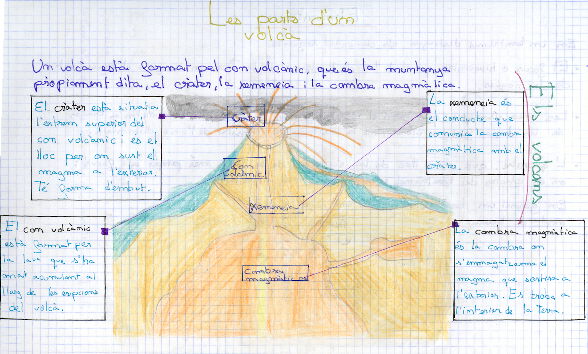 Les parts d'un
volcà
Un volcà està format pel con volcànic, que és la muntanya
pròpiament dita, el cràter, la xemeneia i la cambra magmàtica.
Els volcans
El cràter està situat a
l'extrem superior del
con volcànic i és el
lloc per on surt el
magma a l'exterior.
Té forma d'embut.
La xemeneia és
el conducte que
comunica la cambra
magmàtica amb el
cràter.
Cràter
Con
volcànic
Xemeneia
Cambra
magmàtica
El con volcànic
està format per
la lava que s'ha
anat acumulant al
llarg de les erupcions
del volcà.
La cambra magmàtica
és la cambra on
s'emmagatzema el
magma, que sortirà a
l'exterior. Es troba a
l'interior de la Terra.